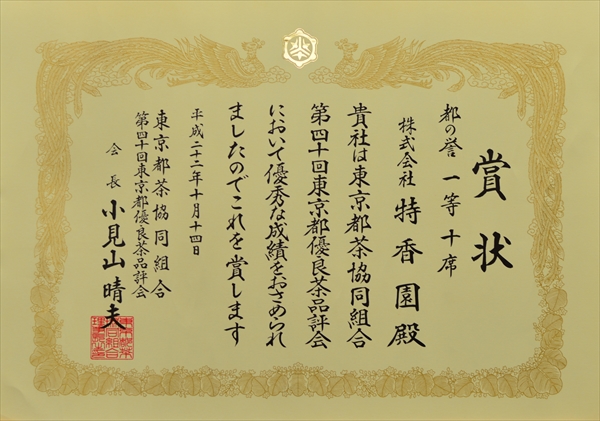 賞状
都の誉 一等十席
株式会社 特香園殿
貴社は東京都茶協同組合
第四十回東京都優良茶品評会
において優秀な成績をおさめられ
ましたのでこれを賞します
平成二十二年十月十四日
東京都茶協同組合
第四十回東京都優良茶品評会
会長 小見山晴夫